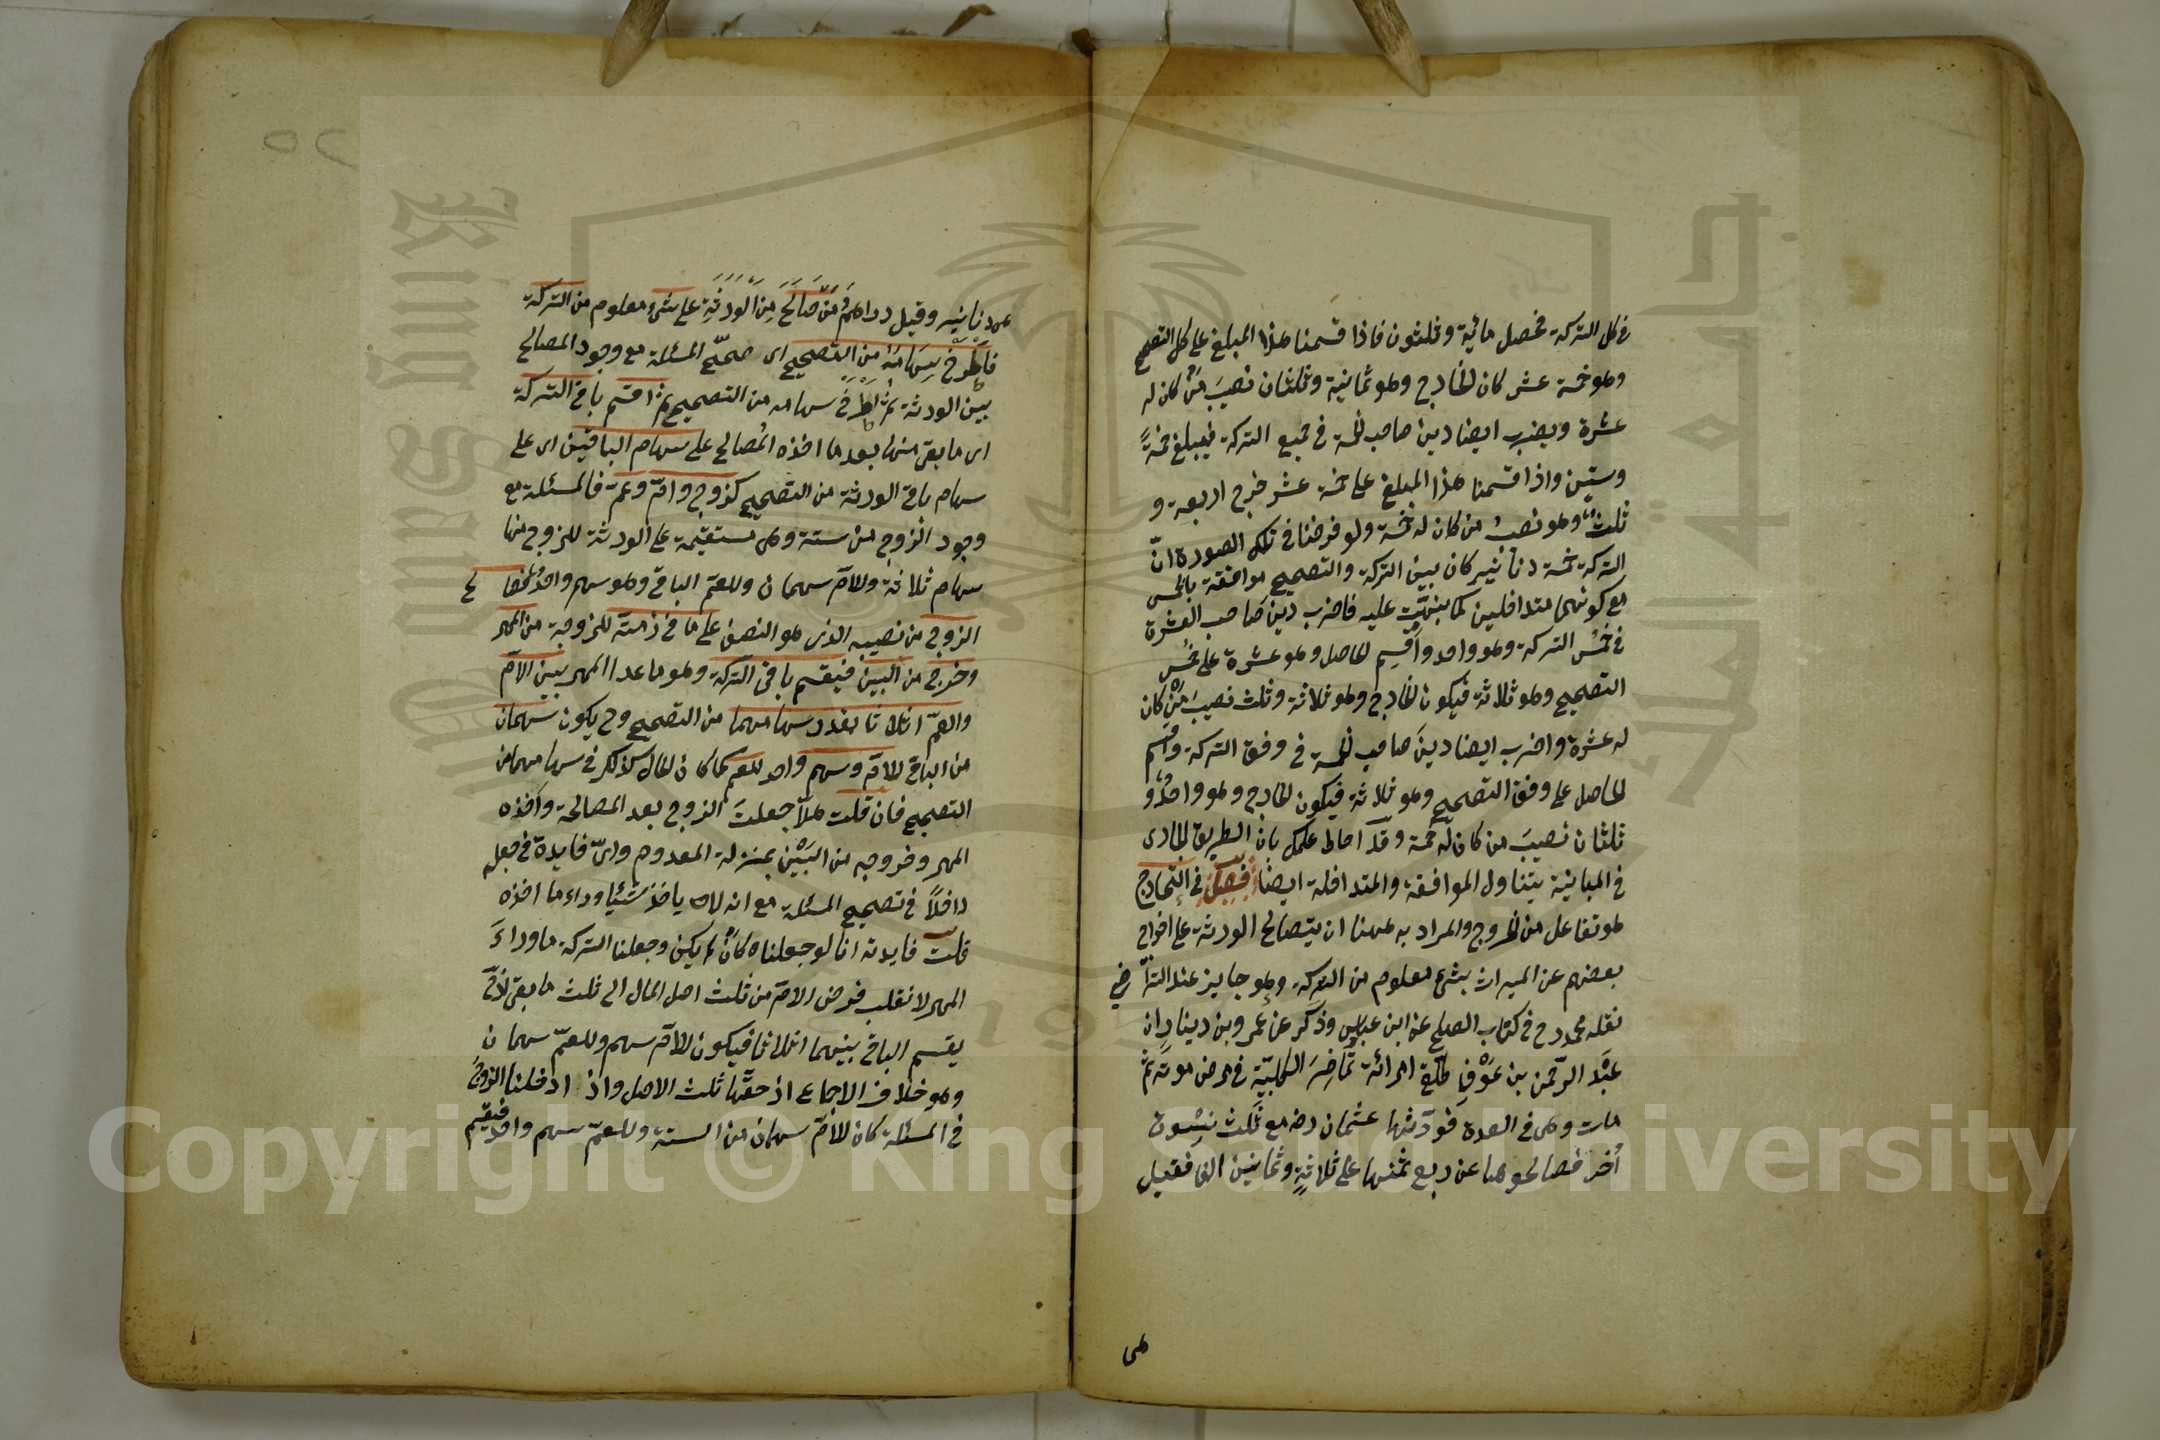 في كل التركة فحصل مائية وثلثون فاذا قسمنا هذا المبلغ على كل التصحيح
وهو خمسة عشر كان الخارج وهو ثمانية وثلثان نصيبَ مَنْ كان له
عشرة ويضرب ايضا دين صاحب الخمسة في جميع التركة فيبلغ خمسةً
وستين واذا قسمنا هذا المبلغ على خمسة عشر خرج اربعة و
ثلث وهو نصيبُ من كان له خمسة ولو فرضنا في تلك الصورة انّ
التركة خمسة دنانير كان بين التركة والتصحيح موافقة بالخمس
مع كونهما متداخلين كما بنهت عليه فاضرب دين صاحب العشرة
في خُمُس التركة وهو واحد واقسم الحاصل وهو عشرة على خُمُس
التصحيح وهو ثلاثة فيكون الخارج وهو ثلاثة وثلث نصيبَ مَنْ كان
له عشرة واضرب ايضا دينَ صاحب الخمسة في وفق التركة واقسم
الحاصل على وفق التصحيح وهو ثلاثة فيكون الخارج وهو واحدٌ و
ثلثان نصيبَ من كان له خمسة وقد احاط علمك بان الطريق الجارى
في المباينة يتناول الموافقة والمتداخلة ايضا فصل في التخارج
هو تفاعل من الخروج والمراد به ههنا ان يتصالح الورثة على اخراج
بعضهم عن الميراث بشئ معلوم من التركة وهو جايز عند التراضي
نقله محمد رح في كتاب الصلح عن ابن عباس وذكر عن عمرو بن دينار ان
عبد الرحمن بن عوف طلق امرائة تماضر الكلبية في مرض موته ثم
مات وهى في العدة فورّثها عثمان رضه مع ثلث نسوة
أُخر فصالحوها عن ربع ثمنها على ثلاثةٍ وثمانين الفا فقيل
هى
٥٢
هى دنانير وقيل دراهم مَنْ صَالَحَ مِنَ الْوَرَثَةِ على شئ معلوم من التركة
فَاطْرَحْ سِهَامَهُ من التصحيح اى صحّح المسئلة مع وجود المصالح
بين الورثة ثم اطرح سهامه من التصحيح ثم اقسم باقى التركة
اى ما بقى منها بعد ما اخذه المُصالح على سهام الباقين اى على
سهام باقى الورثة من التصحيح كزوج وامّ وعمّ فالمسئلة مع
وجود الزوج من ستة وهى مستقيمة على الورثة للزوج منها
سهام ثلاثة وللام سهمان وللعم الباقى وهو سهم واحد فصالح
الزوج من نصيبه الذى هو النصف على ما في ذمته للزوجة من المهر
وخرج من البين فيقسم باقى التركة وهو ما عدا المهر بين الامّ
والعمّ اثلاثا بقدر سهامهما من التصحيح وح يكون سهمان
من الباقى للامّ وسهم واحد للعم كما كان الحال كذلك في سهامهما من
التصحيح فان قلت هلّا جعلتَ الزوج بعد المصالحة واَخْذه
المهر وخروجه من البَيْن بمنزلة المعدوم واىّ فايدة في جعله
داخلًا في تصحيح المسئلة مع انه لا ياخذ شيئا وراء ما اخذه
قلت فايدته انا لو جعلناه كأن لم يكن وجعلنا التركة ما وراءَ
المهر لا نقلب فرض الامّ من ثلث اصل المال الى ثلث ما بقى اذ ح
يقسم الباقى بينهما اثلاثا فيكون للامّ سهم وللعمّ سهمان
وهو خلاف الاجماع اذ حقّها ثلث الاصل واذ ادخلنا الزوج
في المسئلة كان للامّ سهمان من الستة وللعمّ سهم واحد فيقسّم
Copyright © King Saud University